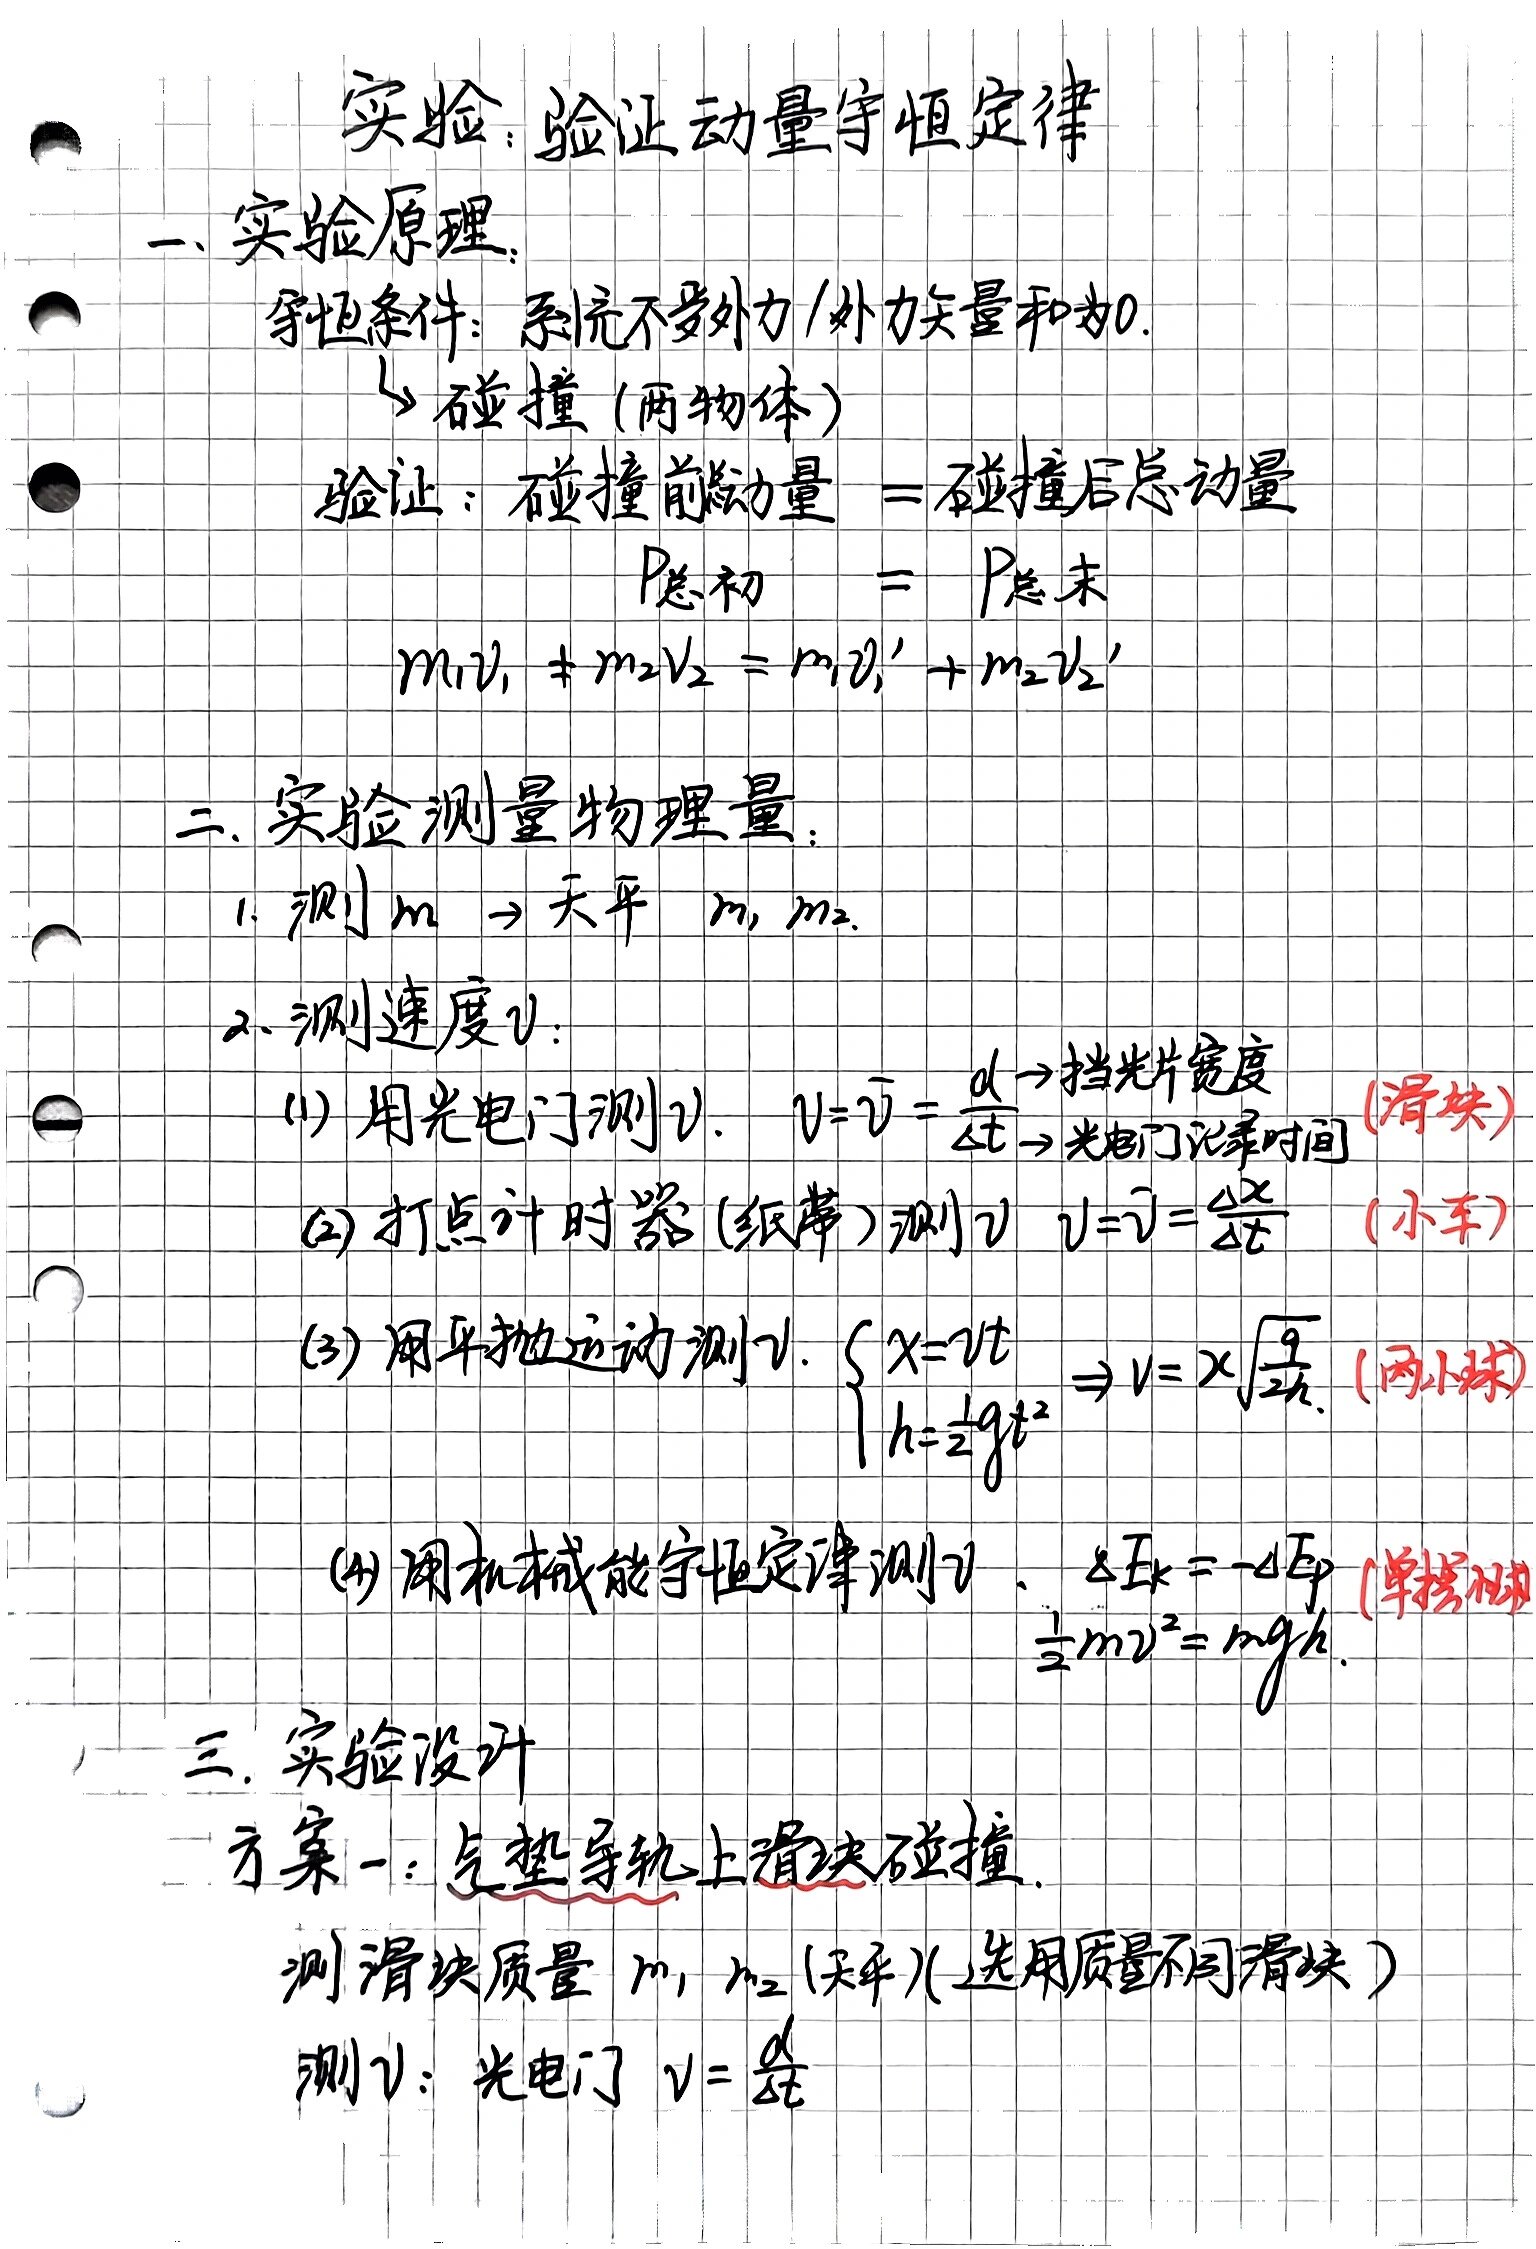 实验：验证动量守恒定律
一、实验原理：
守恒条件：系统不受外力/外力矢量和为0.
↳ 碰撞（两物体）
验证：碰撞前总动量 = 碰撞后总动量
P总初 = P总末
m₁v₁ + m₂v₂ = m₁v₁' + m₂v₂'
二、实验测量物理量：
1. 测m → 天平 m₁ m₂.
2. 测速度v：
(1) 用光电门测v. v = v̄ = d/Δt d→挡光片宽度 Δt→光电门记录时间 (滑块)
(2) 打点计时器(纸带)测v v = v̄ = Δx/Δt (小车)
(3) 用平抛运动测v. { x=vt h=½gt² ⇒ v = x√(g/2h). (两小球)
(4) 用机械能守恒定律测v. ΔEk = -ΔEp (单摆小球)
½mv² = mgh.
三. 实验设计
方案一：气垫导轨上滑块碰撞.
测滑块质量 m₁ m₂ (天平)(选用质量不同滑块)
测v：光电门 v = d/Δt